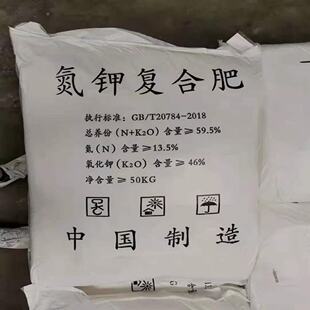 氮钾复合肥
执行标准：GB/T20784-2018
总养份（N+K2O）含量≥59.5%
氮（N）含量≥13.5%
氧化钾（K2O）含量≥46%
净含量≥50KG
中国制造